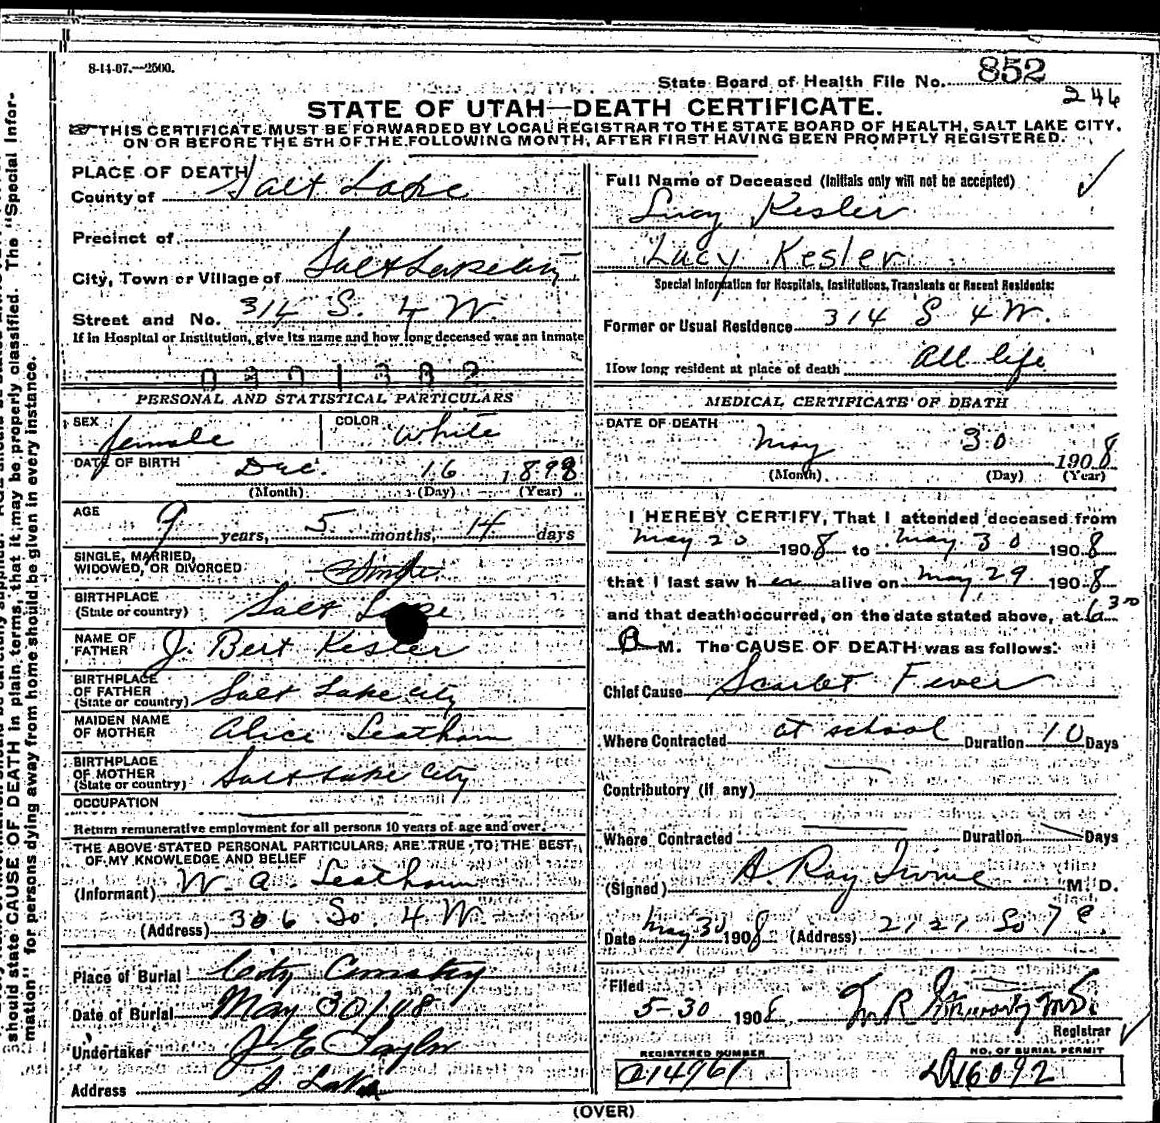 8-14-07.—2500.
State Board of Health File No. 852
246
STATE OF UTAH—DEATH CERTIFICATE.
THIS CERTIFICATE MUST BE FORWARDED BY LOCAL REGISTRAR TO THE STATE BOARD OF HEALTH, SALT LAKE CITY,
ON OR BEFORE THE 5TH OF THE FOLLOWING MONTH, AFTER FIRST HAVING BEEN PROMPTLY REGISTERED.
PLACE OF DEATH
County of Salt Lake
Precinct of
City, Town or Village of Salt Lake City
Street and No. 314 S. 4 W.
If in Hospital or Institution, give its name and how long deceased was an inmate
0301382
PERSONAL AND STATISTICAL PARTICULARS
SEX female COLOR White
DATE OF BIRTH Dec. 16 1898
(Month) (Day) (Year)
AGE 9 years, 5 months, 14 days
SINGLE, MARRIED,
WIDOWED, OR DIVORCED Single
BIRTHPLACE
(State or country) Salt Lake
NAME OF
FATHER J. Bert Kesler
BIRTHPLACE
OF FATHER
(State or country) Salt Lake City
MAIDEN NAME
OF MOTHER Alice Leatham
BIRTHPLACE
OF MOTHER
(State or country) Salt Lake City
OCCUPATION
Return remunerative employment for all persons 10 years of age and over.
THE ABOVE STATED PERSONAL PARTICULARS, ARE TRUE TO THE BEST
OF MY KNOWLEDGE AND BELIEF
(Informant) W. A. Leatham
(Address) 306 So. 4 W.
Place of Burial City Cemetery
Date of Burial May 30/08
Undertaker J E Taylor
Address S Lake
Full Name of Deceased (Initials only will not be accepted)
Lucy Kesler
Lucy Kesler
Special Information for Hospitals, Institutions, Transients or Recent Residents:
Former or Usual Residence 314 S 4 W.
How long resident at place of death All life
MEDICAL CERTIFICATE OF DEATH
DATE OF DEATH May 30 1908
(Month) (Day) (Year)
I HEREBY CERTIFY, That I attended deceased from
May 20 1908 to May 30 1908
that I last saw her alive on May 29 1908
and that death occurred, on the date stated above, at 6 30
M. The CAUSE OF DEATH was as follows:
Chief Cause Scarlet Fever
Where Contracted at school Duration 10 Days
Contributory (if any)
Where Contracted Duration Days
(Signed) A. Ray Irvine M. D.
Date May 30 1908 (Address) 2121 So 7 E
Filed
5-30 1908
Registrar
REGISTERED NUMBER
NO. OF BURIAL PERMIT
(OVER)
should state CAUSE OF DEATH in plain terms, that it may be properly classified. The "Special Infor-
mation" for persons dying away from home should be given in every instance.